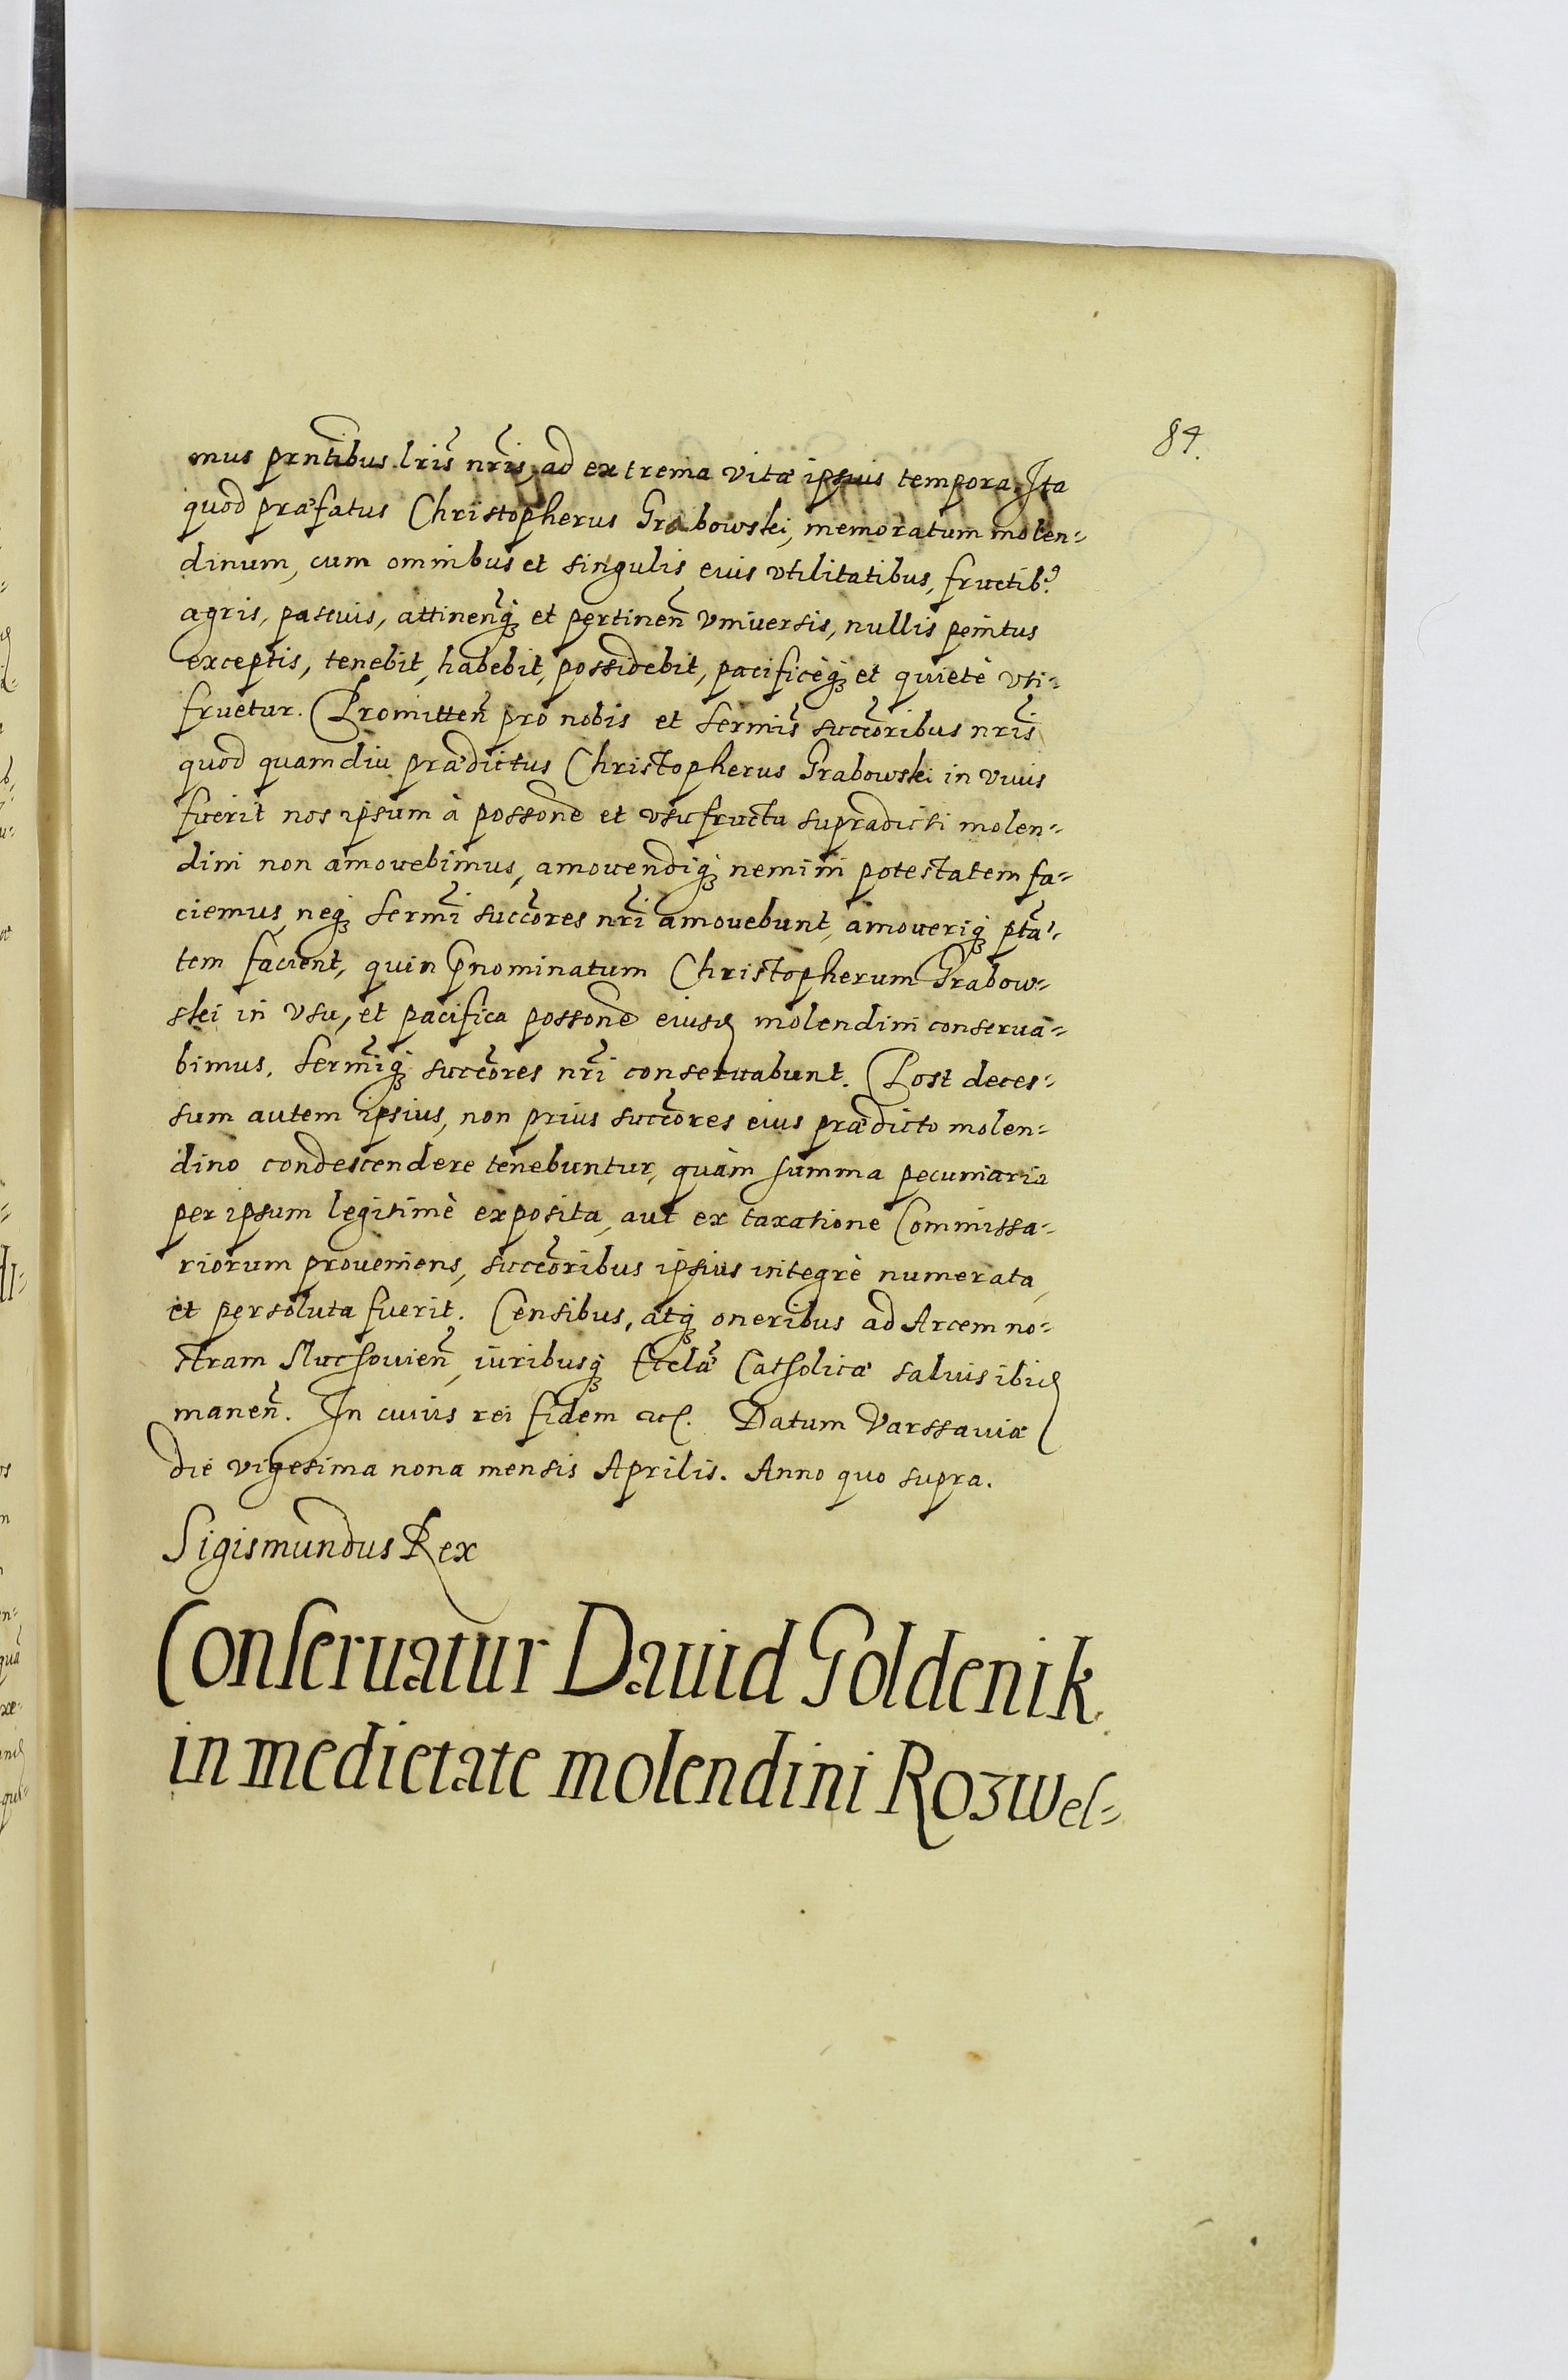 84.
mus prntibus lris nris, ad extrema vitæ ipsius tempora. Ita
quod præfatus Christopherus Grabowski, memoratum molen=
dinum, cum omnibus et singulis eius vtilitatibus, fructib9
agris, pascuis, attinenq3 et pertinen vniuersis, nullis penitus
exceptis, tenebit, habebit, possidebit, pacificèq3 et quietè vti=
fruetur. Promitten pro nobis et sermis succoribus nris
quod quamdiu prædictus Christopherus Grabowski in viuis
fuerit nos ipsum à possone et vsufructu supradicti molen=
dini non amouebimus, amouendiq3 nemini potestatem fa=
ciemus neq3 sermi succores nri amouebunt, amoueriq3 pta=
tem facient, quin prnominatum Christopherum Grabow=
ski in vsu, et pacifica possone eiusd molendini conserua=
bimus, sermiq3 succores nri conseruabunt. Post deces=
sum autem ipsius, non prius succores eius prædicto molen=
dino condescendere tenebuntur, quàm summa pecuniaria
per ipsum legitimè exposita, aut ex taxatione Commissa=
riorum proueniens, succoribus ipsius integrè numerata,
et persoluta fuerit. Censibus, atq3 oneribus ad Arcem no=
stram Sluchouien, iuribusq3 Ecclæ Catholicæ saluis ibid
manen. In cuius rei fidem etc. Datum Varssauiæ
die vigesima nona mensis Aprilis. Anno quo supra.
Sigismundus Rex
Conseruatur Dauid Goldenik
in medietate molendini Rozwel=